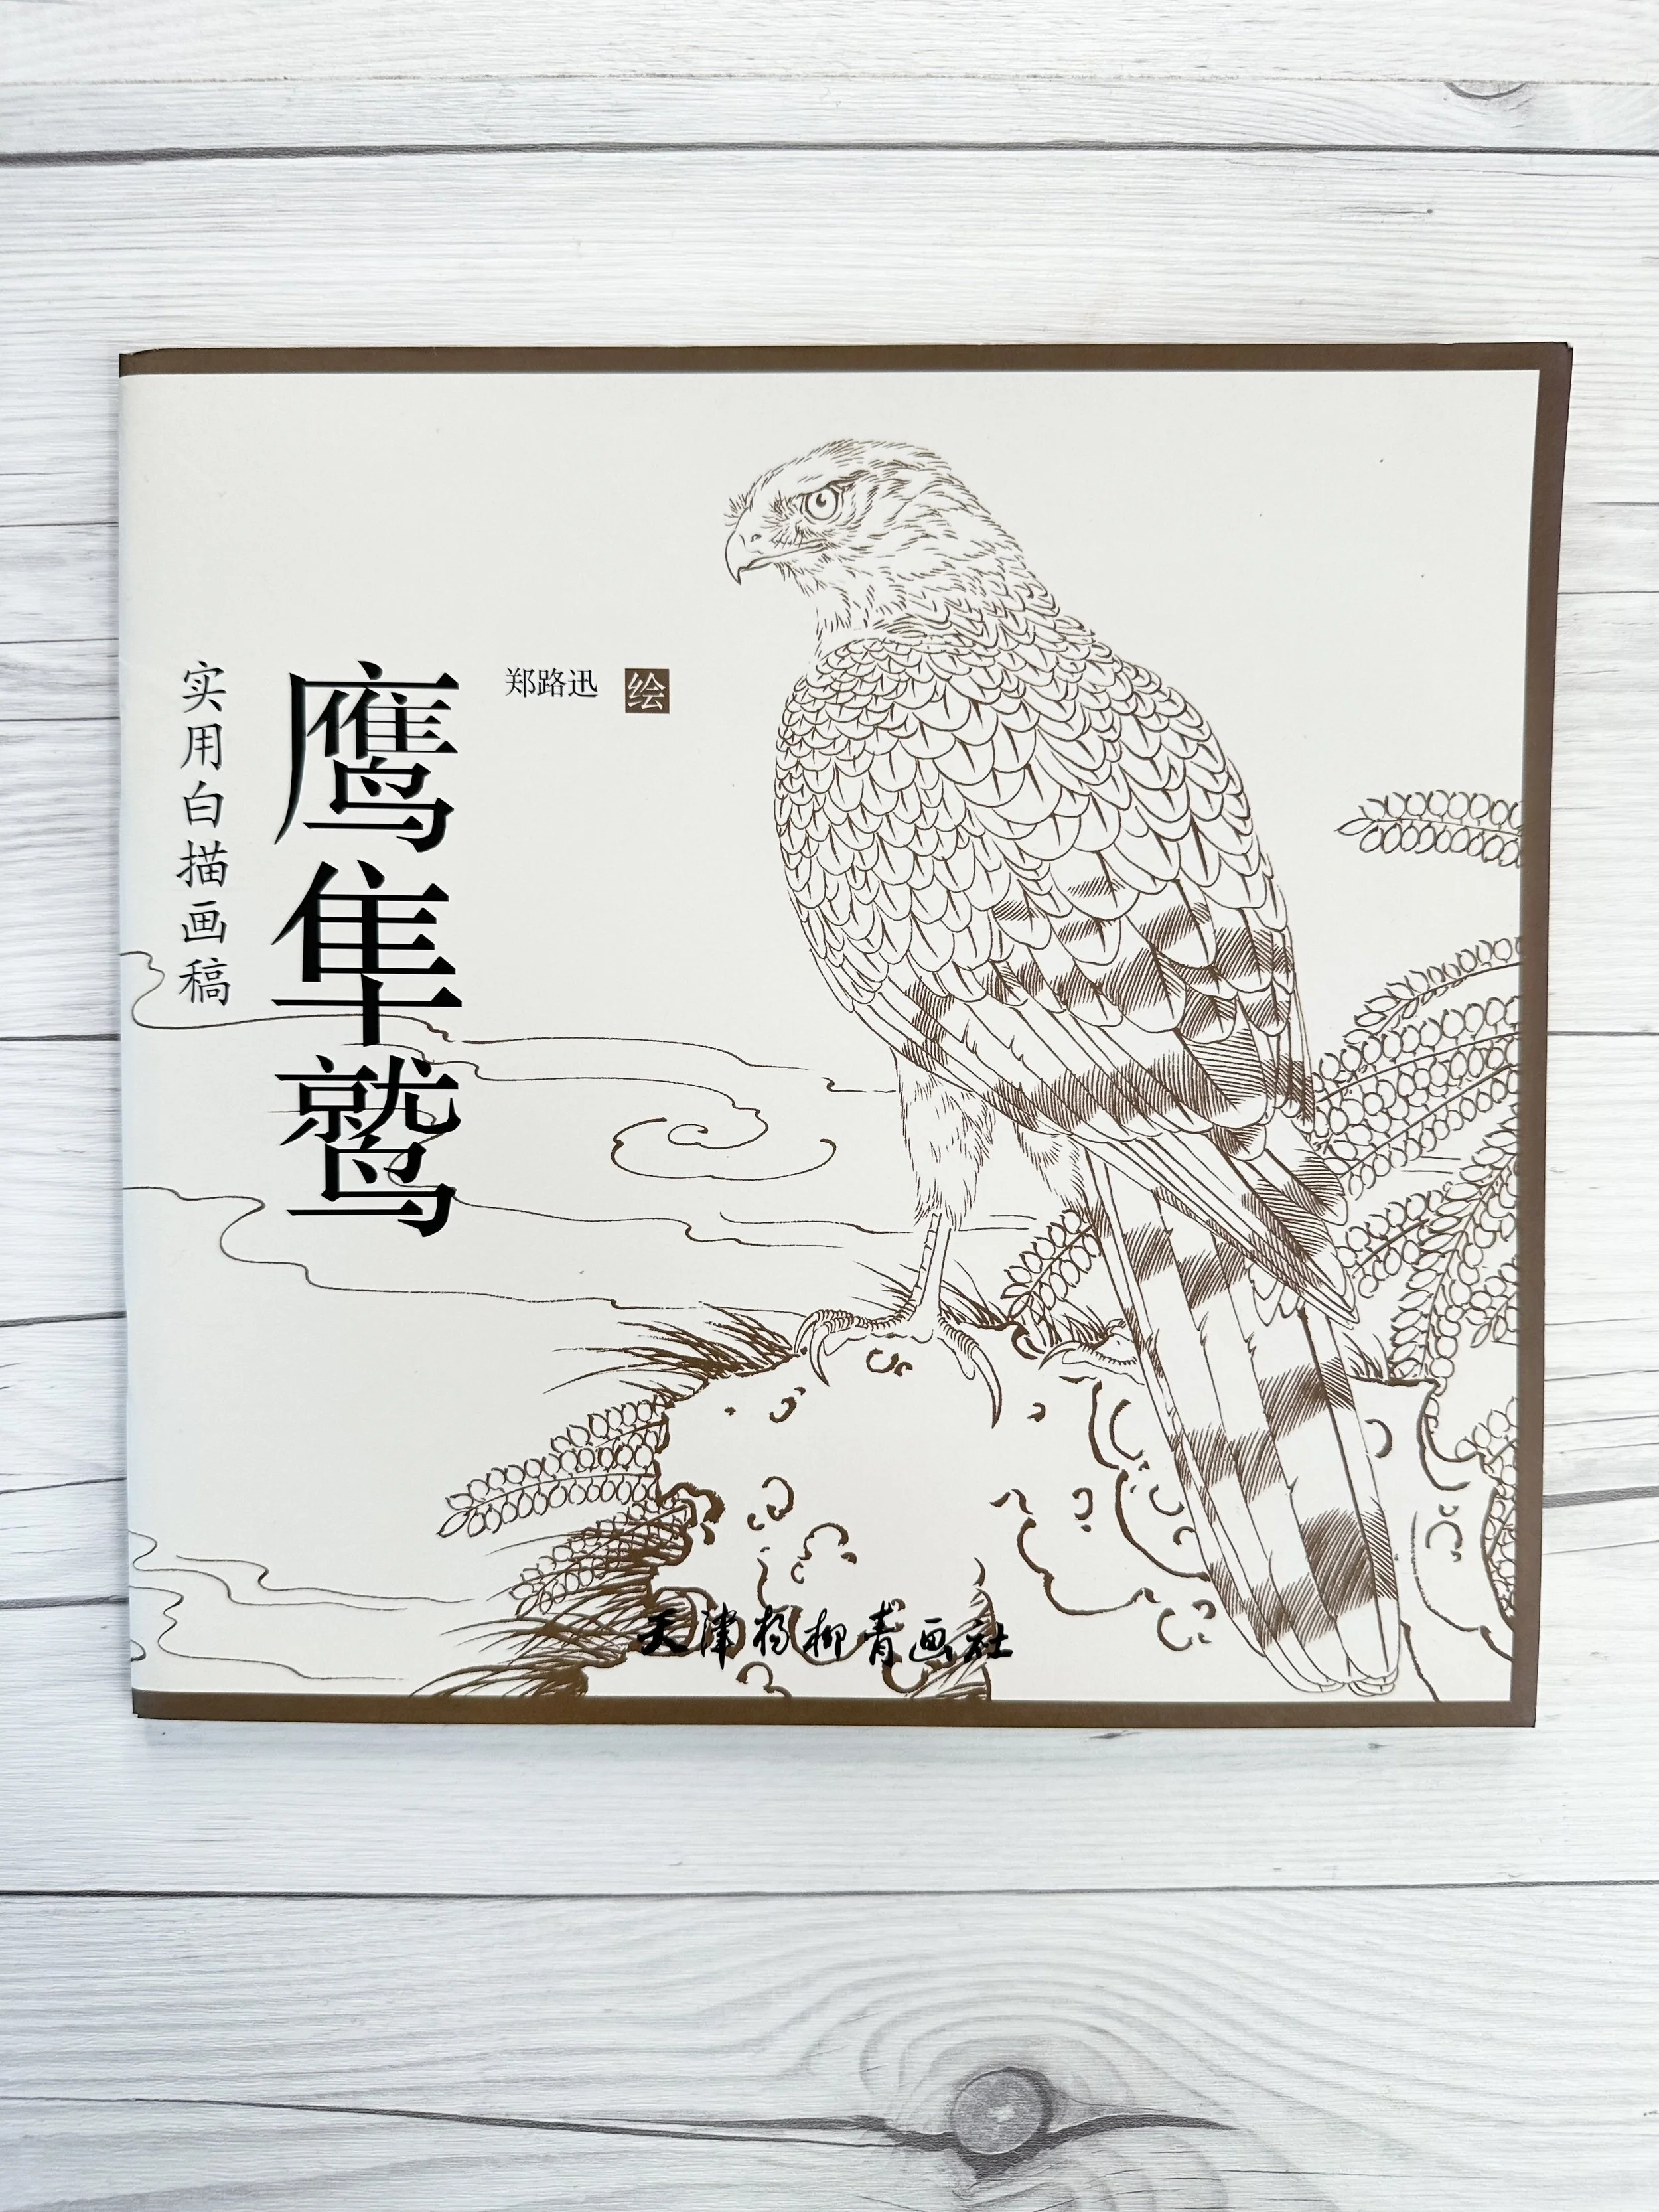 实用白描画稿
鹰隼鹫
郑路迅 绘
天津杨柳青画社